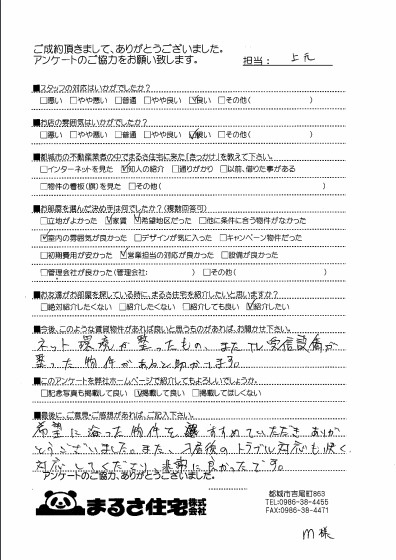 ご成約頂きまして、ありがとうございました。
アンケートのご協力をお願い致します。
担当：上元
■スタッフの対応はいかがでしたか？
□悪い □やや悪い □普通 □やや良い ☑良い □その他( )
■お店の雰囲気はいかがでしたか？
□悪い □やや悪い □普通 □やや良い ☑良い □その他( )
■都城市の不動産業者の中でまるさ住宅に来た「きっかけ」を教えて下さい。
□インターネットを見た ☑知人の紹介 □通りがかり □以前、借りた事がある
□物件の看板(旗)を見た □その他( )
■お部屋を選んだ決め手は何でしたか？(複数回答可)
□立地がよかった ☑家賃 ☑希望地区だった □他に条件に合う物件がなかった
☑室内の雰囲気が良かった □デザインが気に入った □キャンペーン物件だった
□初期費用が安かった ☑営業担当の対応が良かった □設備が良かった
□管理会社が良かった(管理会社： ) □その他( )
■お友達がお部屋を探している時に、まるさ住宅を紹介したいと思いますか？
□絶対紹介したくない □紹介したくない □紹介しても良い ☑紹介したい
■今後、このような賃貸物件があれば良いと思うものがあれば、お聞かせ下さい。
ネット環境が整ったもの、またTV受信設備が
整った物件があると助かります。
■このアンケートを弊社ホームページで紹介してもよろしいでしょうか。
□記念写真も掲載して良い ☑掲載して良い □掲載してほしくない
■最後に、ご意見・ご感想があれば、ご記入下さい。
希望に沿った物件をすすめていただきありが
とうございました。また、入居後のトラブル対応も快く
対応してくださり、非常に良かったです。
アンケートのご協力、ありがとうございました。
まるさ住宅株式会社
都城市吉尾町863
TEL:0986-38-4455
FAX:0986-38-4471
M様